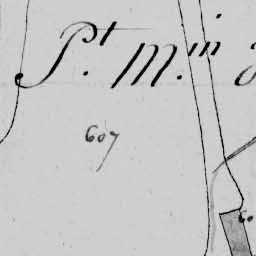 P.t M.in
607